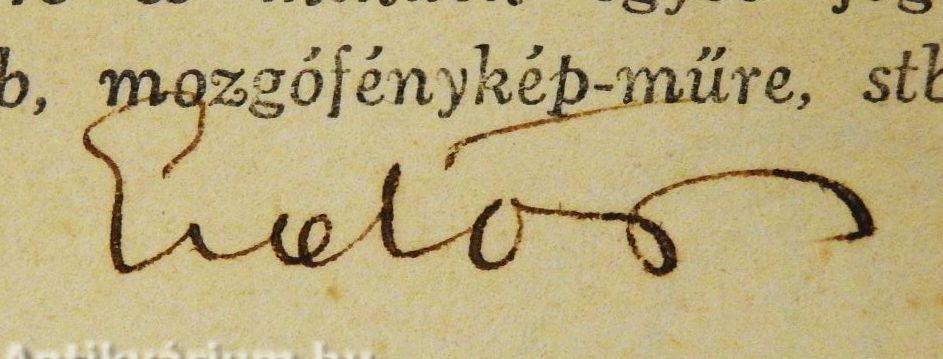 b, mozgófénykép-műre, stb
Erdős
Antikvárium.hu